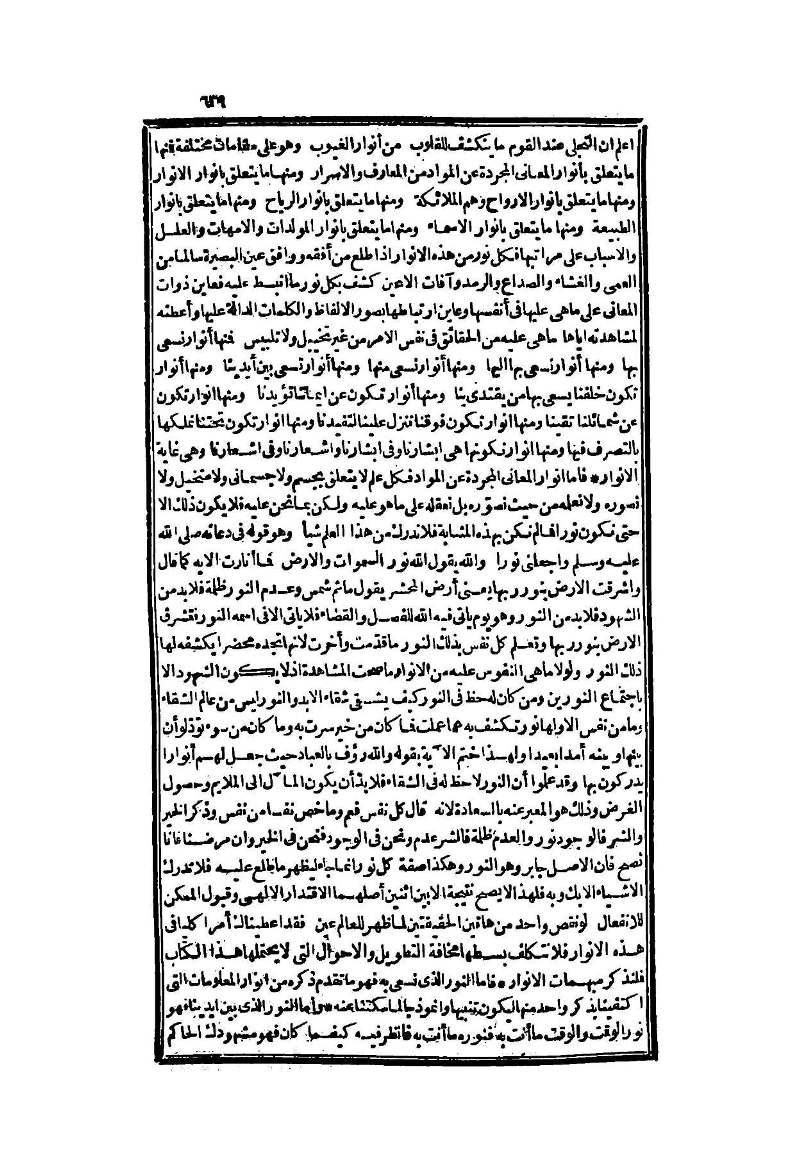 ٦٣٩
اعلم ان التجلى عند القوم ما ينكشف للقلوب من أنوار الغيوب وهو على مقامات مختلفة فنها
ما يتعلق بأنوار المعانى المجردة عن المواد من المعارف والاسرار ومنها ما يتعلق بانوار الانوار
ومنها ما يتعلق بانوار الارواح وهم الملائكة ومنها ما يتعلق بانوار الرياح ومنها ما يتعلق بانوار
الطبيعة ومنها ما يتعلق بانوار الاسماء ومنها ما يتعلق بانوار المولدات والامهات والعلل
والاسباب على مراتبها فكل نور من هذه الانوار اذا طلع من أفقه ووافق عين البصيرة سالما من
العمى والغشاء والصداع والرمد وآفات الاعين كشف بكل نور ما انبسط عليه فعاين ذوات
المعانى على ماهى عليها فى أنفسها وعاين ارتباطها بصور الالفاظ والكلمات الدالة عليها وأعطته
لمشاهدته اياها ماهى عليه من الحقائق فى نفس الامر من غير تخيل ولا تلبيس فنها أنوار نسعى
بها ومنها أنوار نسعى بها اليها ومنها أنوار نسعى منها ومنها أنوار تسعى بين أيدينا ومنها أنوار
تكون خلفنا يسعى بها من يقتدى بنا ومنها أنوار تكون عن ايماننا تؤيدنا ومنها انوار تكون
عن شمائلنا تقينا ومنها انوار تكون فوقنا تنزل علينا لتفيدنا ومنها انوار تكون تحتنا نملكها
بالتصرف فيها ومنها انوار نكونها هى ابشارنا وفى ابشارنا واشعارنا وفى اشعارنا وهى غاية
الانوار * فاما انوار المعانى المجردة عن المواد فكل علم لا يتعلق بجسم ولا جسمانى ولا متخيل ولا
نصوره ولا نعلمه من حيث تصوره بل نعقله على ما هو عليه ولكن بما نحن عليه فلا يكون ذلك الا
حتى نكون نورا فالم نكن بهذه المثابة فلا ندرك من هذا العلم شيأ وهو قوله فى دعائه صلى الله
عليه وسلم واجعلنى نورا والله يقول الله نور السموات والارض فما أنارت الا به كما قال
واشرقت الارض بنور ربها يعنى أرض المحشر يقول ما ثم شمس وعدم النور ظلمة فلا بد من
الشهود فلا بد من النور وهو يوم يأتى فيه الله للفصل والقضاء فلا ياتى الا فى اسمه النور فتشرق
الارض بنور ربها وتعلم كل نفس بذلك النور ما قدمت وأخرت لانها تجده محضرا يكشفه لها
ذلك النور ولولا ماهى النفوس عليه من الانوار ماصحت المشاهدة اذ لا يكون الشهود الا
باجتماع النورين ومن كان له حظ فى النور كيف يشقى شقاء الابد والنور ليس من عالم الشقاء
وما من نفس الا ولها نور تكشف به عما عملت فما كان من خير سرت به وما كان من سوء تودلو أن
بينها وبينه أمدا بعيدا ولهذا ختم الآية بقوله والله رؤف بالعباد حيث جعل لهم أنوارا
يدركون بها وقد علموا أن النور لاحظ له فى الشقاء فلا بد أن يكون المآل الى الملايم وحصول
الغرض وذلك هو المعبر عنه بالسعادة لانه قال كل نفس فعم وما خص نفسا من نفس وذكر الخير
والشر فالوجود نور والعدم ظلمة فالشر عدم ونحن فى الوجود فنحن فى الخير وان مرضنا فانا
نصح فان الاصل جابر وهو النور وهكذا صفة كل نور انما جاء ليظهر ما طلع عليه فلا تدرك
الاشياء الا بك وبه فلهذا لا يصح نتيجة الا بين اثنين أصلهما الاقتدار الالهى وقبول الممكن
للانفعال لو نقص واحد من هاتين الحقيقتين لما ظهر للعالم عين فقد اعطيناك أمرا كليا فى
هذه الانوار فلا نتكلف بسطها مخافة التطويل والاحوال التى لا يحتملها هذا الكتاب
فلنذكر مبهمات الانوار * فاما النور الذى نسعى به فهو ما تقدم ذكره من انوار المعلومات التى
اكتفينا بذكر واحد منها ليكون تنبيها وانموذجا لما سكتنا عنه * وأما النور الذى بين ايدينا فهو
نور الوقت والوقت ما أنت به فنوره ما أنت به فانظر فيه كيفما كان فهو مشهودك الحاكم